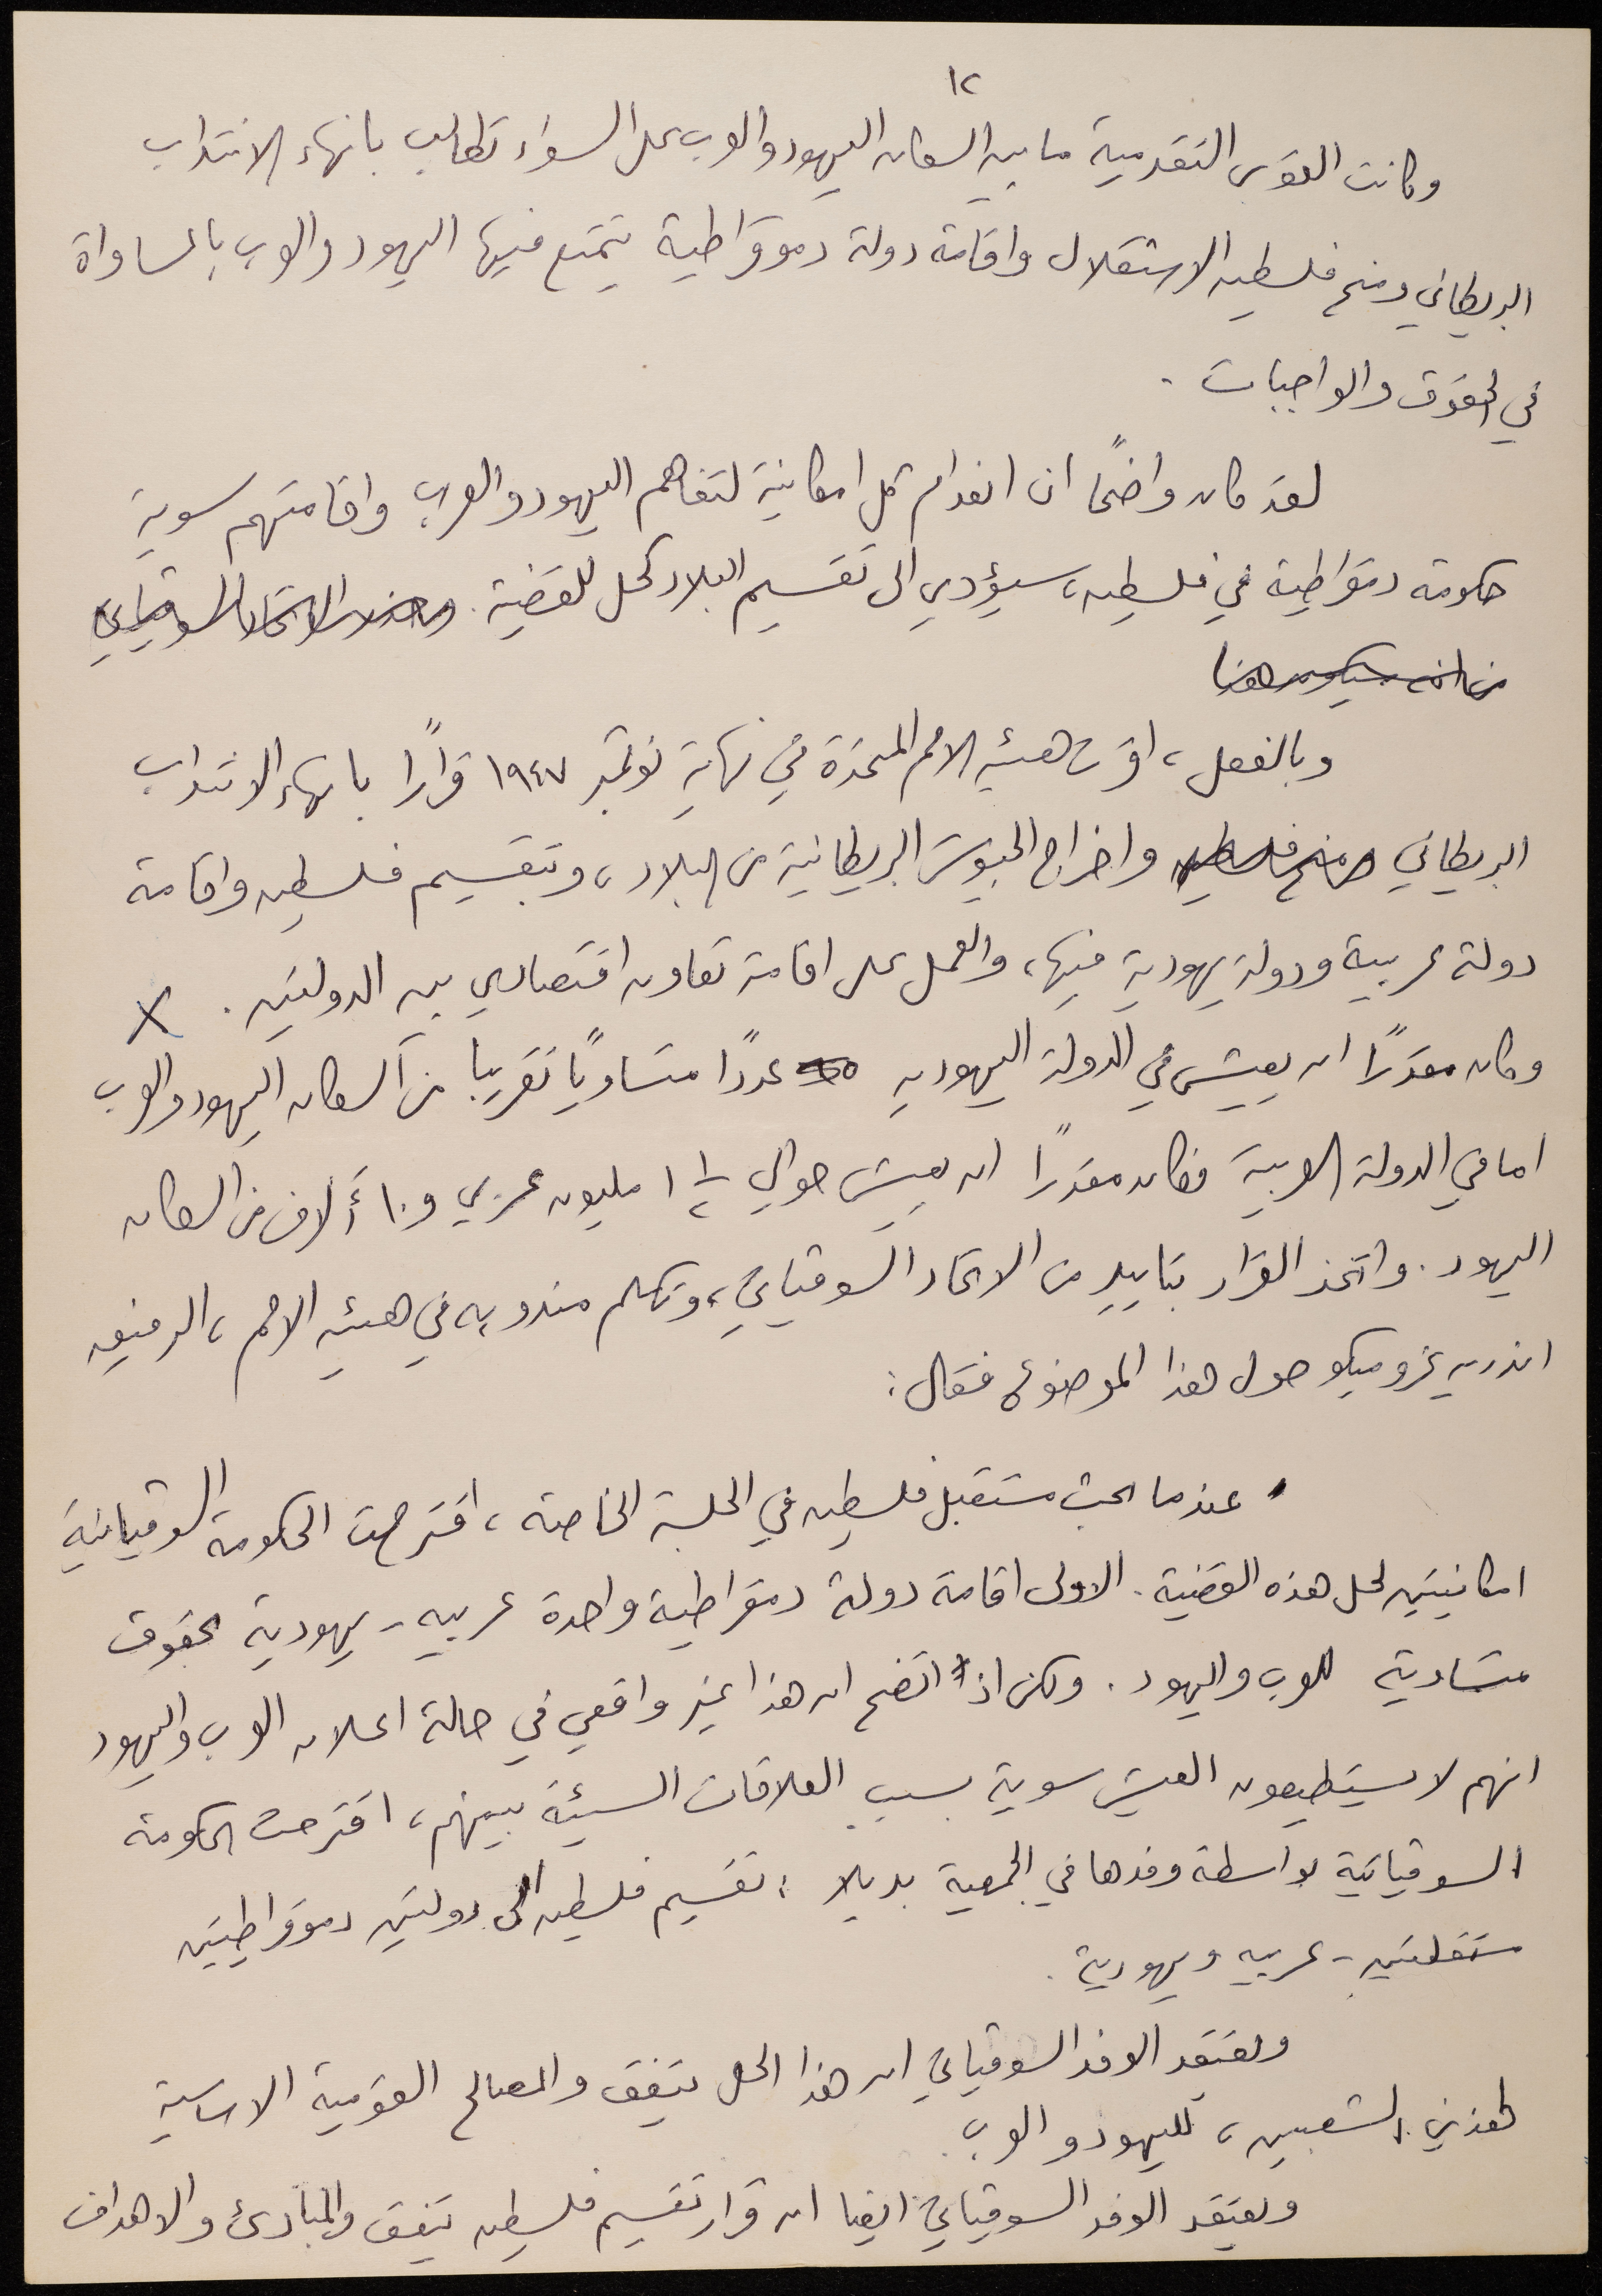 ١٢
وكانت القوى التقدمية ما بين السكان اليهود والعرب على السواء تطالب بانهاء الانتداب
البريطاني ومنح فلسطين الاستقلال واقامة دولة دموقراطية يتمتع فيها اليهود والعرب بالمساواة
في الحقوق والواجبات .
لقد كان واضحًا ان انعدام كل امكانية لتفاهم اليهود والعرب واقامتهم سوية
حكومة دمقراطية في فلسطين، سيؤدي الى تقسيم البلاد كحل للقضية. الاتحاد السوڤياتي
من انه سيكون هنا
وبالفعل، اقرت هيئة الامم المتحدة في نهاية نوڤمبر ١٩٤٧ قرارًا بانهاء الانتداب
البريطاني ومنح فلسطين واخراج الجيوش البريطانية من البلاد، وتقسيم فلسطين واقامة
دولة عربية ودولة يهودية فيها، والعمل على اقامة تعاون اقتصادي بين الدولتين . X
وكان مقدرًا ان يعيش في الدولة اليهودية عددًا متساويًا تقريبا من السكان اليهود والعرب
اما في الدولة العربية فكان مقدرًا ان يعيش حوالي ١ ١/٢ مليون عربي و١٠ أَلاف من السكان
اليهود . واتخذ القرار بتاييد من الاتحاد السوڤياتي، وتكلم مندوبه في هيئة الامم، الرفيق
اندريه غروميكو حول هذا الموضوع فقال :
" عندما بحث مستقبل فلسطين في الجلسة الخاصة، اقترحت الحكومة السوڤياتية
امكانيتين لحل هذه القضية . الاولى اقامة دولة دمقراطية واحدة عربيه - يهودية بحقوق
متساوية للعرب واليهود . ولكن اذا اتضح ان هذا غير واقعي في حالة اعلان العرب واليهود
انهم لا يستطيعون العيش سوية بسبب العلاقات السيئة بينهم، اقترحت الحكومة
السوڤياتية بواسطة وفدها في الجمعية بديلا : تقسيم فلسطين الى دولتين دموقراطيتين
مستقلتين - عربيه ويهودية .
ويعتقد الوفد السوڤياتي ان هذا الحل يتفق والمصالح القومية الاساسية
لهذين الشعبين، لليهود والعرب .
ويعتقد الوفد السوڤياتي ايضا ان قرار تقسيم فلسطين يتفق والمبادئ والاهداف